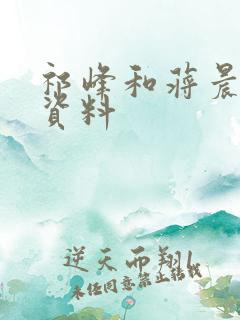 祁峰和蒋晨
资料
逆天而翔l
未经同意禁止转载